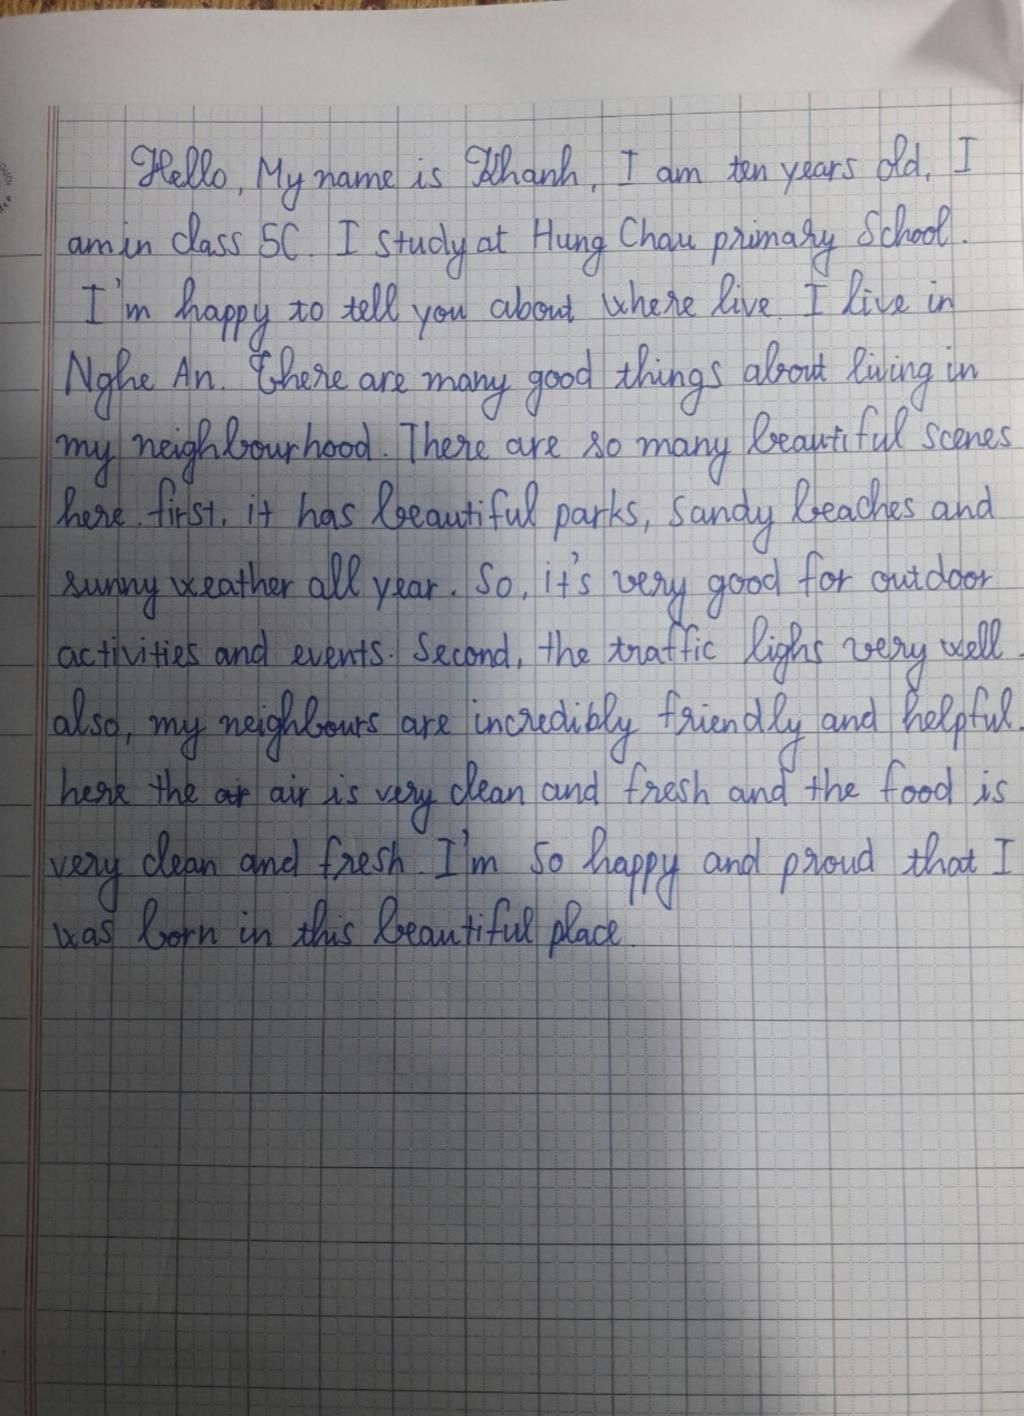 Hello, My name is Khanh, I am ten years old, I
am in class 5C. I study at Hung Chau primary School.
I'm happy to tell you about where live. I live in
Nghe An. There are many good things about living in
my neighbourhood. There are so many beautiful scenes
here. first, it has beautiful parks, sandy beaches and
sunny weather all year. So, it's very good for outdoor
activities and events. Second, the traffic lighs very well.
also, my neighbours are incredibly friendly and helpful.
here the air is very clean and fresh and the food is
very clean and fresh. I'm so happy and proud that I
was born in this beautiful place.